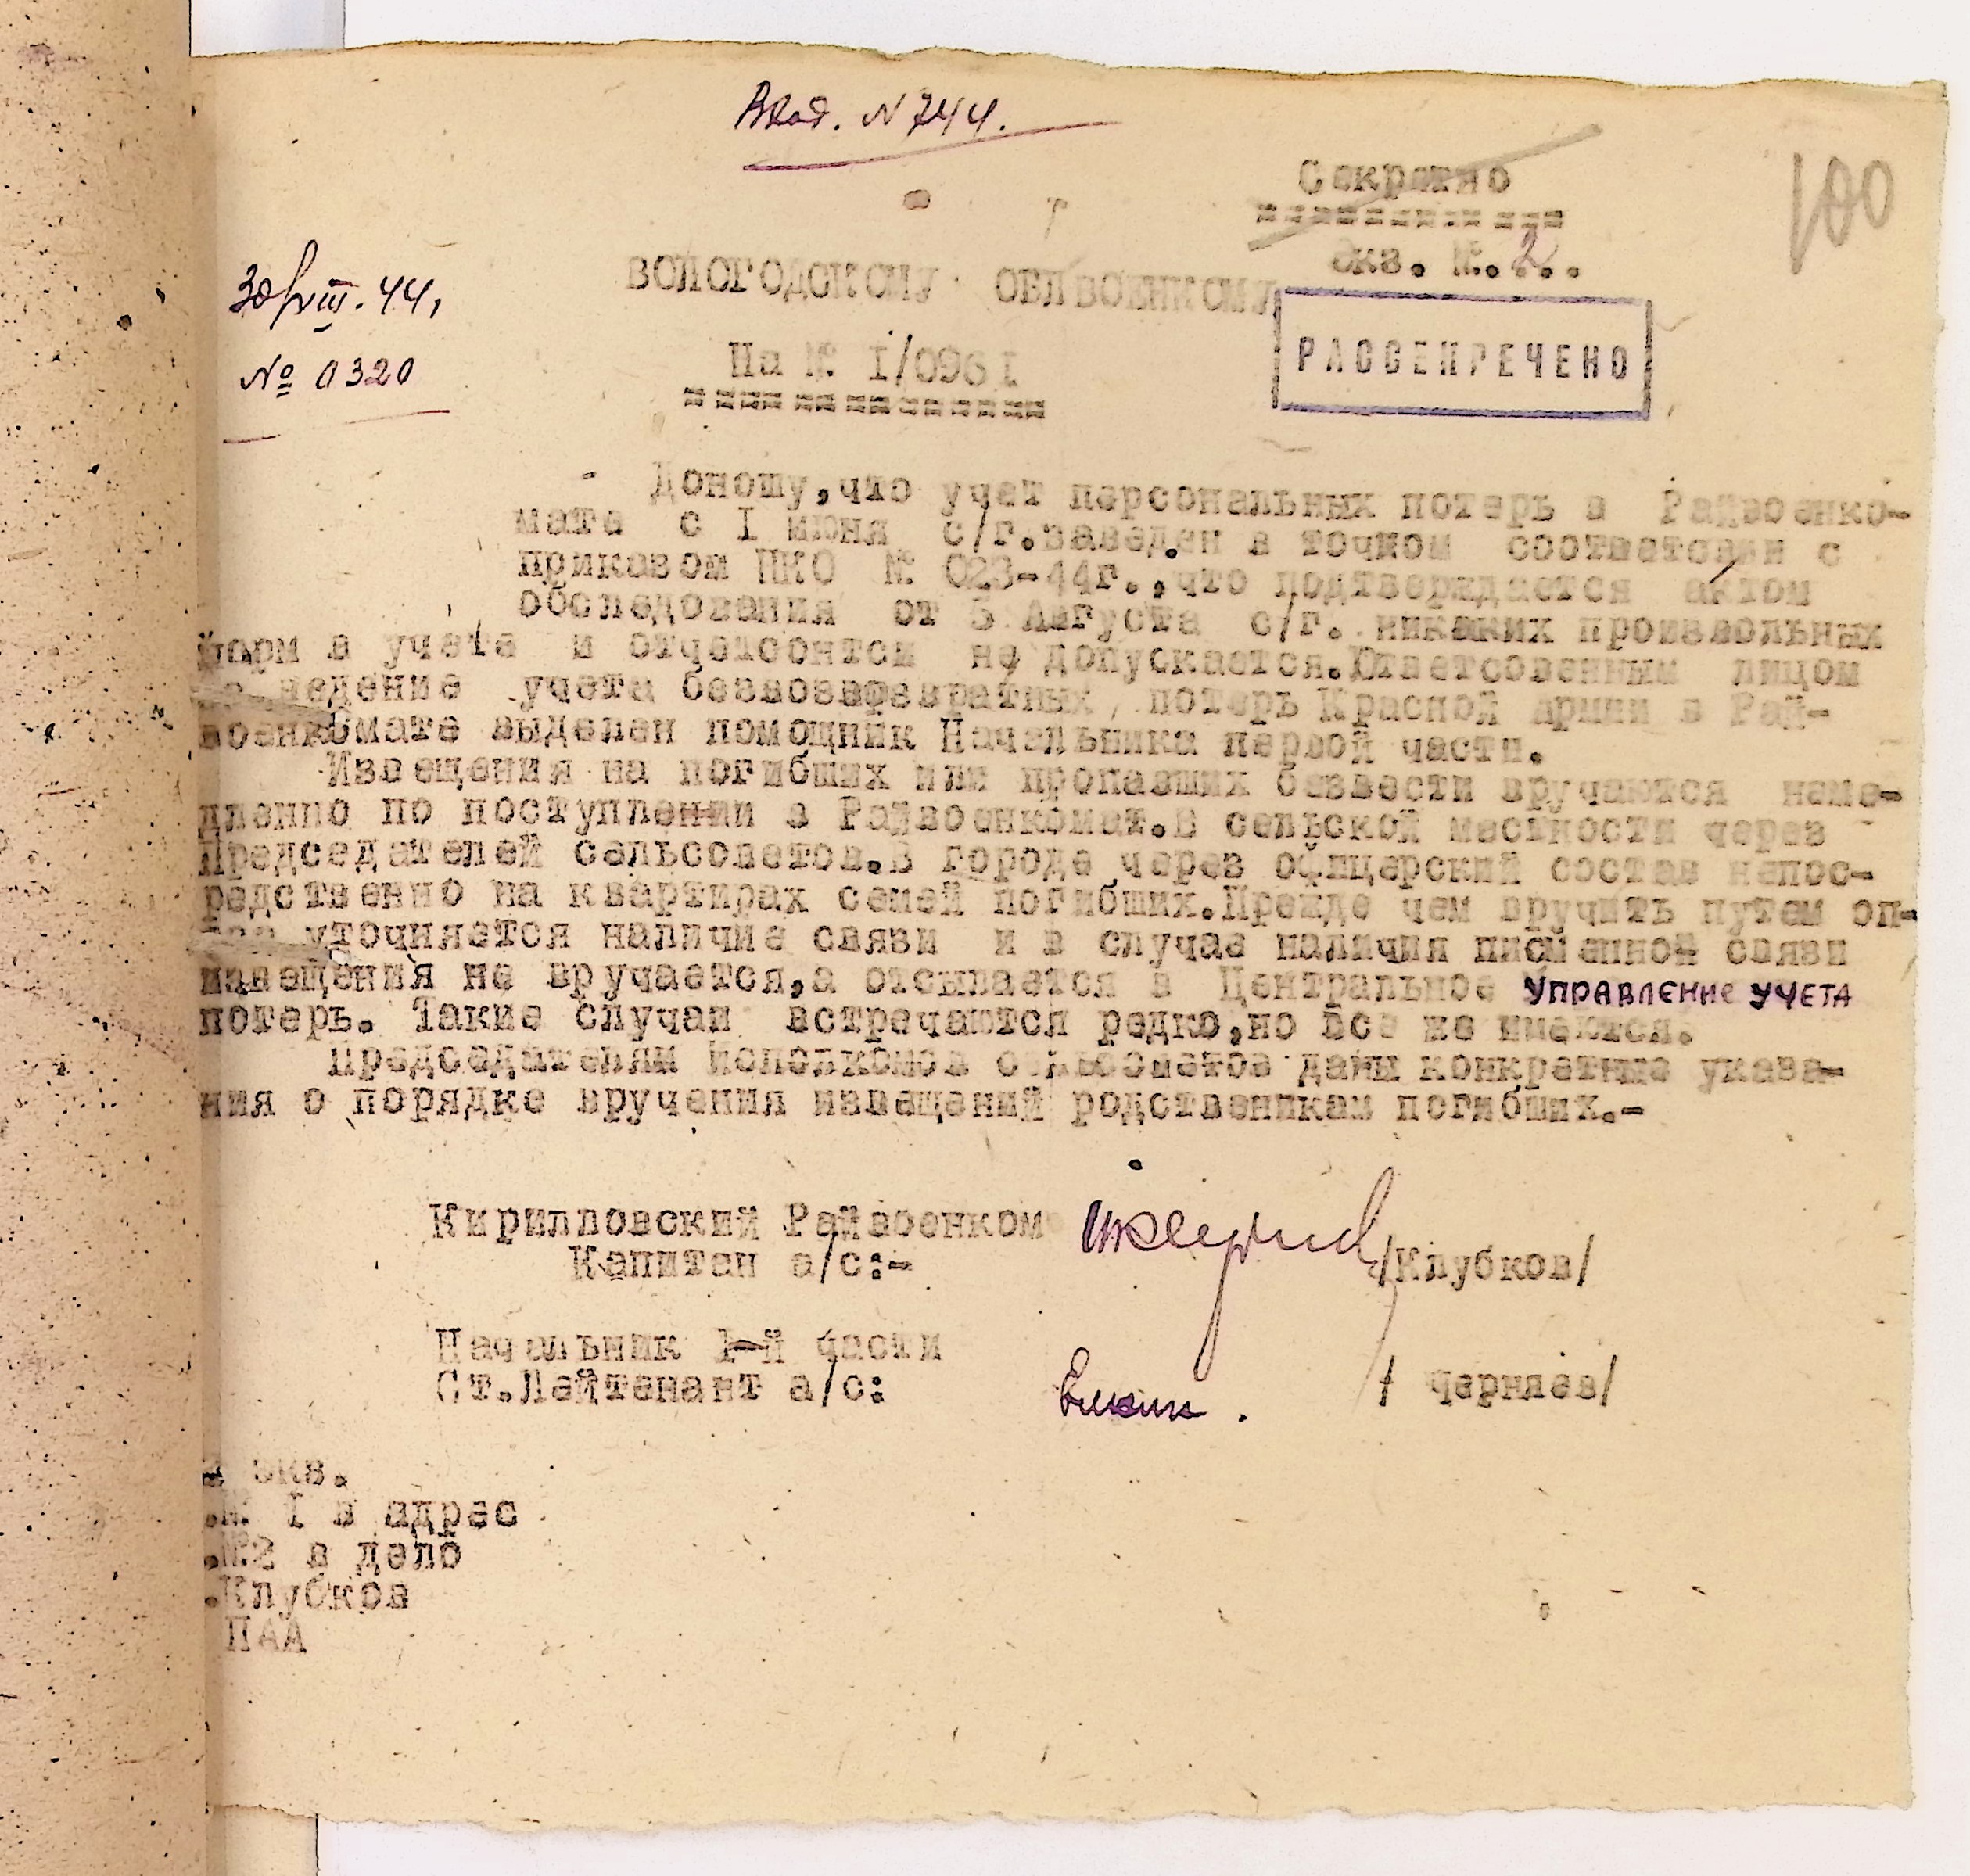 Вход. N 744.
Секретно
100
Экз. №.2..
30/VIII.44,
ВОЛОГОДСКОМУ ОБЛВОЕНКОМУ
РАССЕКРЕЧЕНО
На № I/096I
№ 0320
Доношу,что учет персональных потерь в Райвоенко-
мате с I июня с/г.заведен в точном соответсвии с
приказом НКО № 023-44г.,что подтверждается актом
обследования от 3 Августа с/г. никаких произвольных
форм в учета и отчетсонтси не допускается.Ответсовенным лицом
ведение учета безвозврзвратных потерь Красной Армии в Рай-
военкомате выделен помощник Начальника первой части.
Извещения на погибших или пропавших безвести вручаются неме-
дленно по поступлении в Райвоенкомат.В сельской местности через
Председателей сельсоветов.В городе через офицерский состав непос-
редственно на квартирах семей погибших.Прежде чем вручить путем оп-
уточняется наличие связи и в случае наличия писменной связи
извещения не вручается,а отсылается в Центральное УПРАВЛЕНИЕ УЧЕТА
потерь. Такие случаи встречаются редко,но все же имеются.
Председателям Исполкомов сельсоветов даны конкретные указа-
ния о порядке вручения извещений родственикам погибших.-
Кирилловский Райвоенком
Капитан а/с:- /Клубков/
Начальник 1-й части
Ст.Лейтенант а/с: / черняев/
экз.
№ I в адрес
.№2 в дело
.Клубков
ПАА